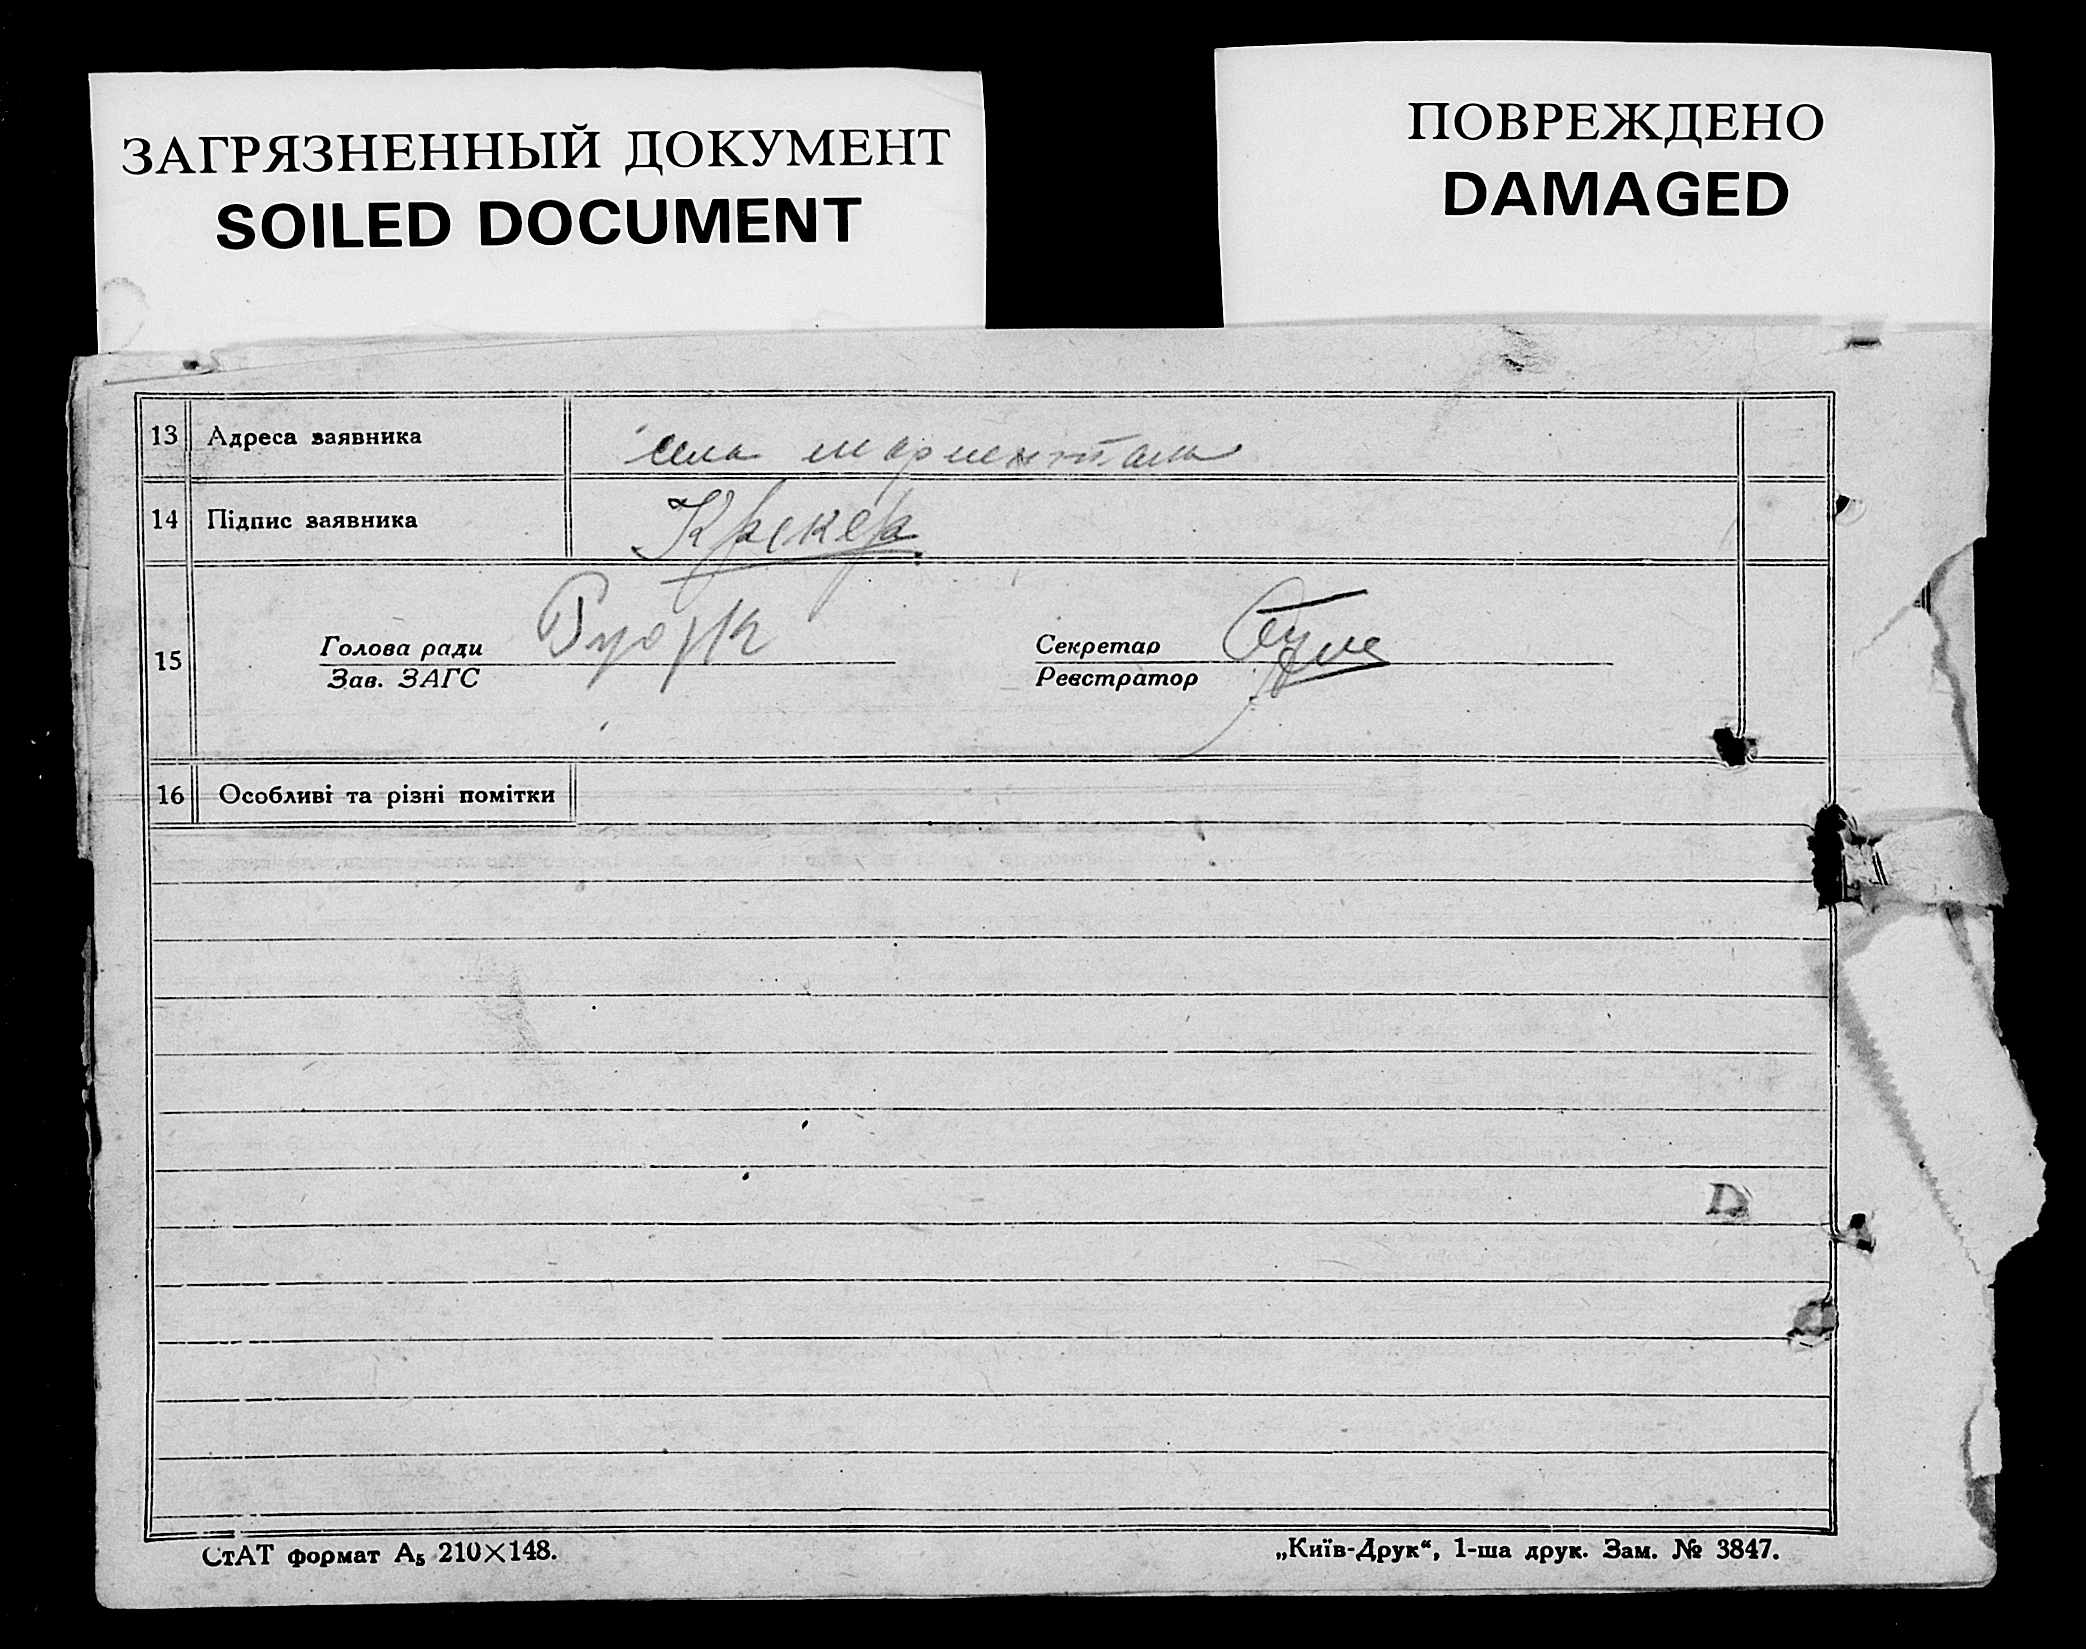 ЗАГРЯЗНЕННЫЙ ДОКУМЕНТ
SOILED DOCUMENT
ПОВРЕЖДЕНО
DAMAGED
13 Адреса заявника села мариентталь
14 Підпис заявника Крекер
15 Голова ради
Зав. ЗАГС
Секретар
Реєстратор
16 Особливі та різні помітки
СтАТ формат А5 210×148.
„Київ-Друк“, 1-ша друк. Зам. № 3847.